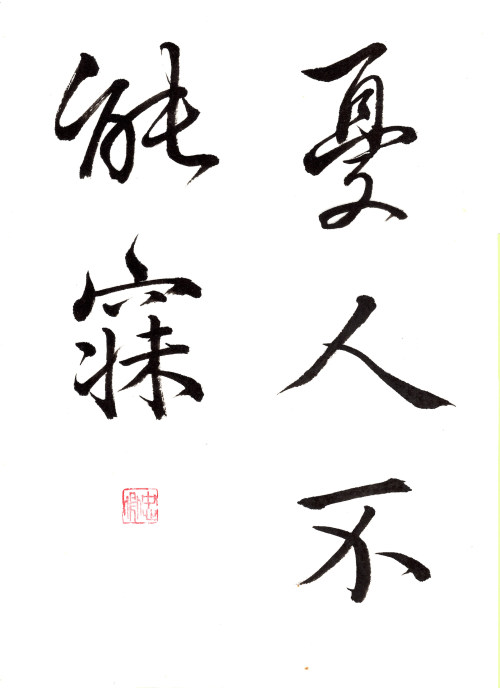 憂人不
能寐